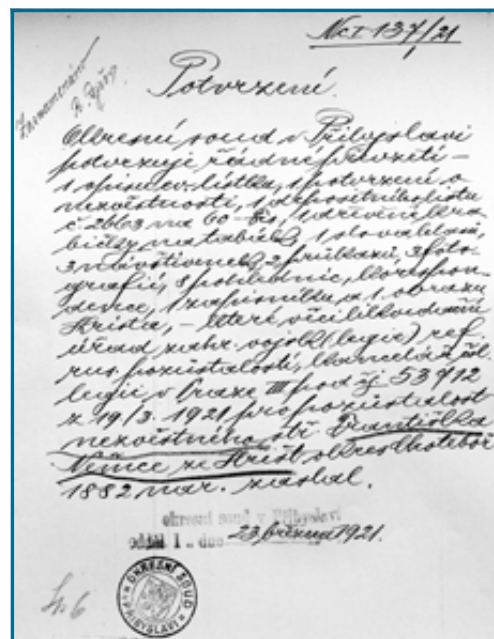 Nc I 137/21
Zaznamenáno
Potvrzení.
Okresní soud v Přibyslavi
potvrzuje řádné převzetí –
1 opisu ev. lístku, 1 potvrzení o
nezvěstnosti, 1 depositního listu
č. 2663 na 60 – , 1 dřevěné kra
bičky na tabák, 1 slov.
3 navštívenek, 2 průkazů, 3 foto-
grafií, 8 pohlednic, korespon-
dence, 1 zápisníku a 1 obrazu
Krista, – které věci likvidační
úřad zahr. vojsk (legie) ref.
rus. pozůstalostí, kancelář čsl.
legií v Praze III pod čj 53712
z 19/3. 1921 pro pozůstalost
nezvěstného stř. Františka
Němce ze Hřišť okres Chotěboř
1882 nar. zaslal.
okresní soud v Přibyslavi
odděl I., dne 23. března 1921.
OKRESNÍ SOUD
PŘIBYSLAVI